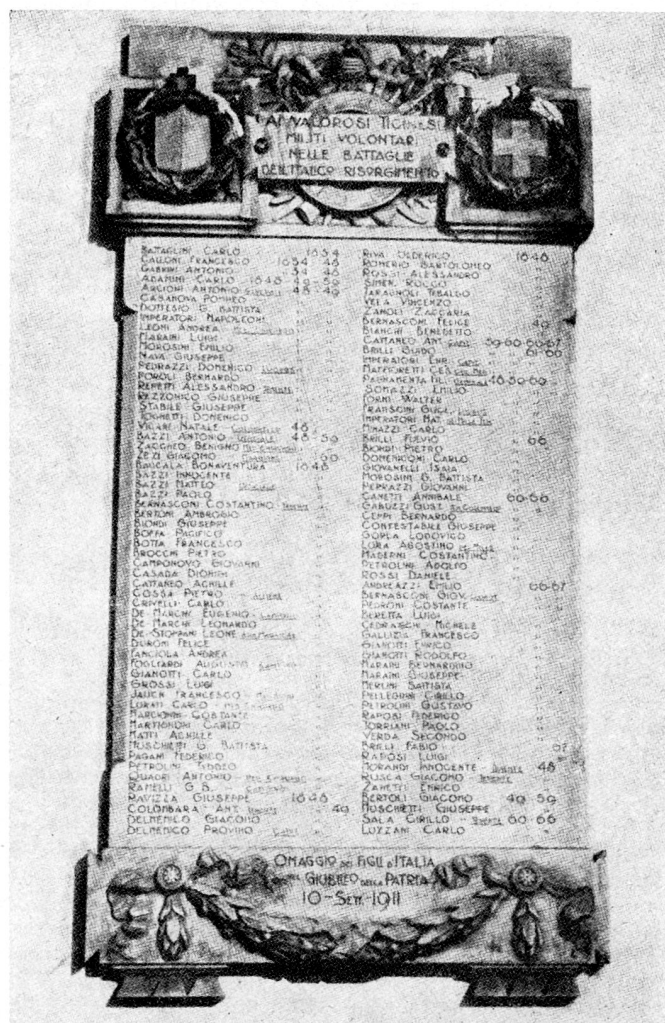 AI VALOROSI TICINESI
MILITI VOLONTARI
NELLE BATTAGLIE
DELL'ITALICO RISORGIMENTO
BATTAGLINI CARLO 1834
CALLONI FRANCESCO 1834-48
GABRINI ANTONIO 34-48
ADAMINI CARLO 1848-49-59
ARCIONI ANTONIO 48-49
CASANOVA POMPEO
DOTTESIO G. BATTISTA
IMPERATORI NAPOLEONE
LEONI ANDREA
MARAINI LUIGI
MOROSINI EMILIO
NAVA GIUSEPPE
PEDRAZZI DOMENICO
POROLI BERNARDO
REPETTI ALESSANDRO
REZZONICO GIUSEPPE
STABILE GIUSEPPE
TOGNETTI DOMENICO
VICARI NATALE 48
BAZZI ANTONIO 48-59
ZACCHEO BENIGNO
ZEZI GIACOMO
BONAVENTURA 1848
BAZZI INNOCENTE
BAZZI MATTEO
BAZZI PAOLO
BERNASCONI COSTANTINO
BERTONI AMBROGIO
BIONDI GIUSEPPE
BOFFA PACIFICO
BOTTA FRANCESCO
BROCCHI PIETRO
CAMPONOVO GIOVANNI
CASADA DIONIGI
CATTANEO ACHILLE
COSSA PIETRO
CRIVELLI CARLO
DE MARCHI EUGENIO
DE MARCHI LEONARDO
DE-STOPPANI LEONE
DURONI FELICE
FANCIOLA ANDREA
FOGLIARDI AUGUSTO
GIANOTTI CARLO
GROSSI LUIGI
JAUCH FRANCESCO
LURATI CARLO
MARCIONNI COSTANTE
MARTIGNONI CARLO
MATTI ACHILLE
MUSCHIETTI G. BATTISTA
PAGANI FEDERICO
PETROLINI TADDEO
QUADRI ANTONIO
RAMELLI G.B.
RAVIZZA GIUSEPPE 1848
COLOMBARA ANT. 49
DELMENICO GIACOMO
DELMENICO PROVINO
RIVA OLDERICO 1848
ROMERIO BARTOLOMEO
ROSSI ALESSANDRO
SIMEN ROCCO
TARAGNOLI TEBALDO
VELA VINCENZO
ZANOLI ZACCARIA
BERNASCONI FELICE 49
BIANCHI BENEDETTO
CATTANEO ANT. 59-60-66-67
BRILLI GUIDO 61-66
IMPERATORI ENR.
MATTIORETTI CES.
PARRAVENTA FIL. 48-50-60
SOMAZZI EMILIO
TORNI WALTER
FRANSCINI GUGL.
IMPERATORI MAT.
MINAZZI CARLO
BRILLI FULVIO 66
BIONDI PIETRO
DOMENICONI CARLO
GIOVANELLI ISAIA
MOROSINI G. BATTISTA
PEDRAZZI GIOVANNI
CANETTI ANNIBALE 60-66
GABUZZI GIUST.
CEPPI BERNARDO
CONTESTABILE GIUSEPPE
GORLA LODOVICO
LURA AGOSTINO
MADERNI COSTANTINO
PETROLINI ADOLFO
ROSSI DANIELE
ANDREAZZI EMILIO 66-67
BERNASCONI GIOV.
PEDRONI COSTANTE
BERETTA LUIGI
CEDRASCHI MICHELE
GALLIZIA FRANCESCO
GIANOTTI ENRICO
GIANOTTI RODOLFO
MARAINI BERNARDINO
MARAINI GIUSEPPE
MERLINI BATTISTA
PELLEGRINI CIRILLO
PETROLINI GUSTAVO
RAPOSI FEDERICO
TORRIANI PAOLO
VERDA SECONDO
BRILLI FABIO 67
RAPOSI LUIGI
MORANDI INNOCENTE TENENTE 48
RUSCA GIACOMO TENENTE
ZANETTI ENRICO
BERTOLI GIACOMO 49-59
MUSCHIETTI GIUSEPPE
SALA CIRILLO TENENTE 60-66
LUZZANI CARLO
OMAGGIO DEI FIGLI D'ITALIA
NEL GIUBILEO DELLA PATRIA
10-SETT-1911